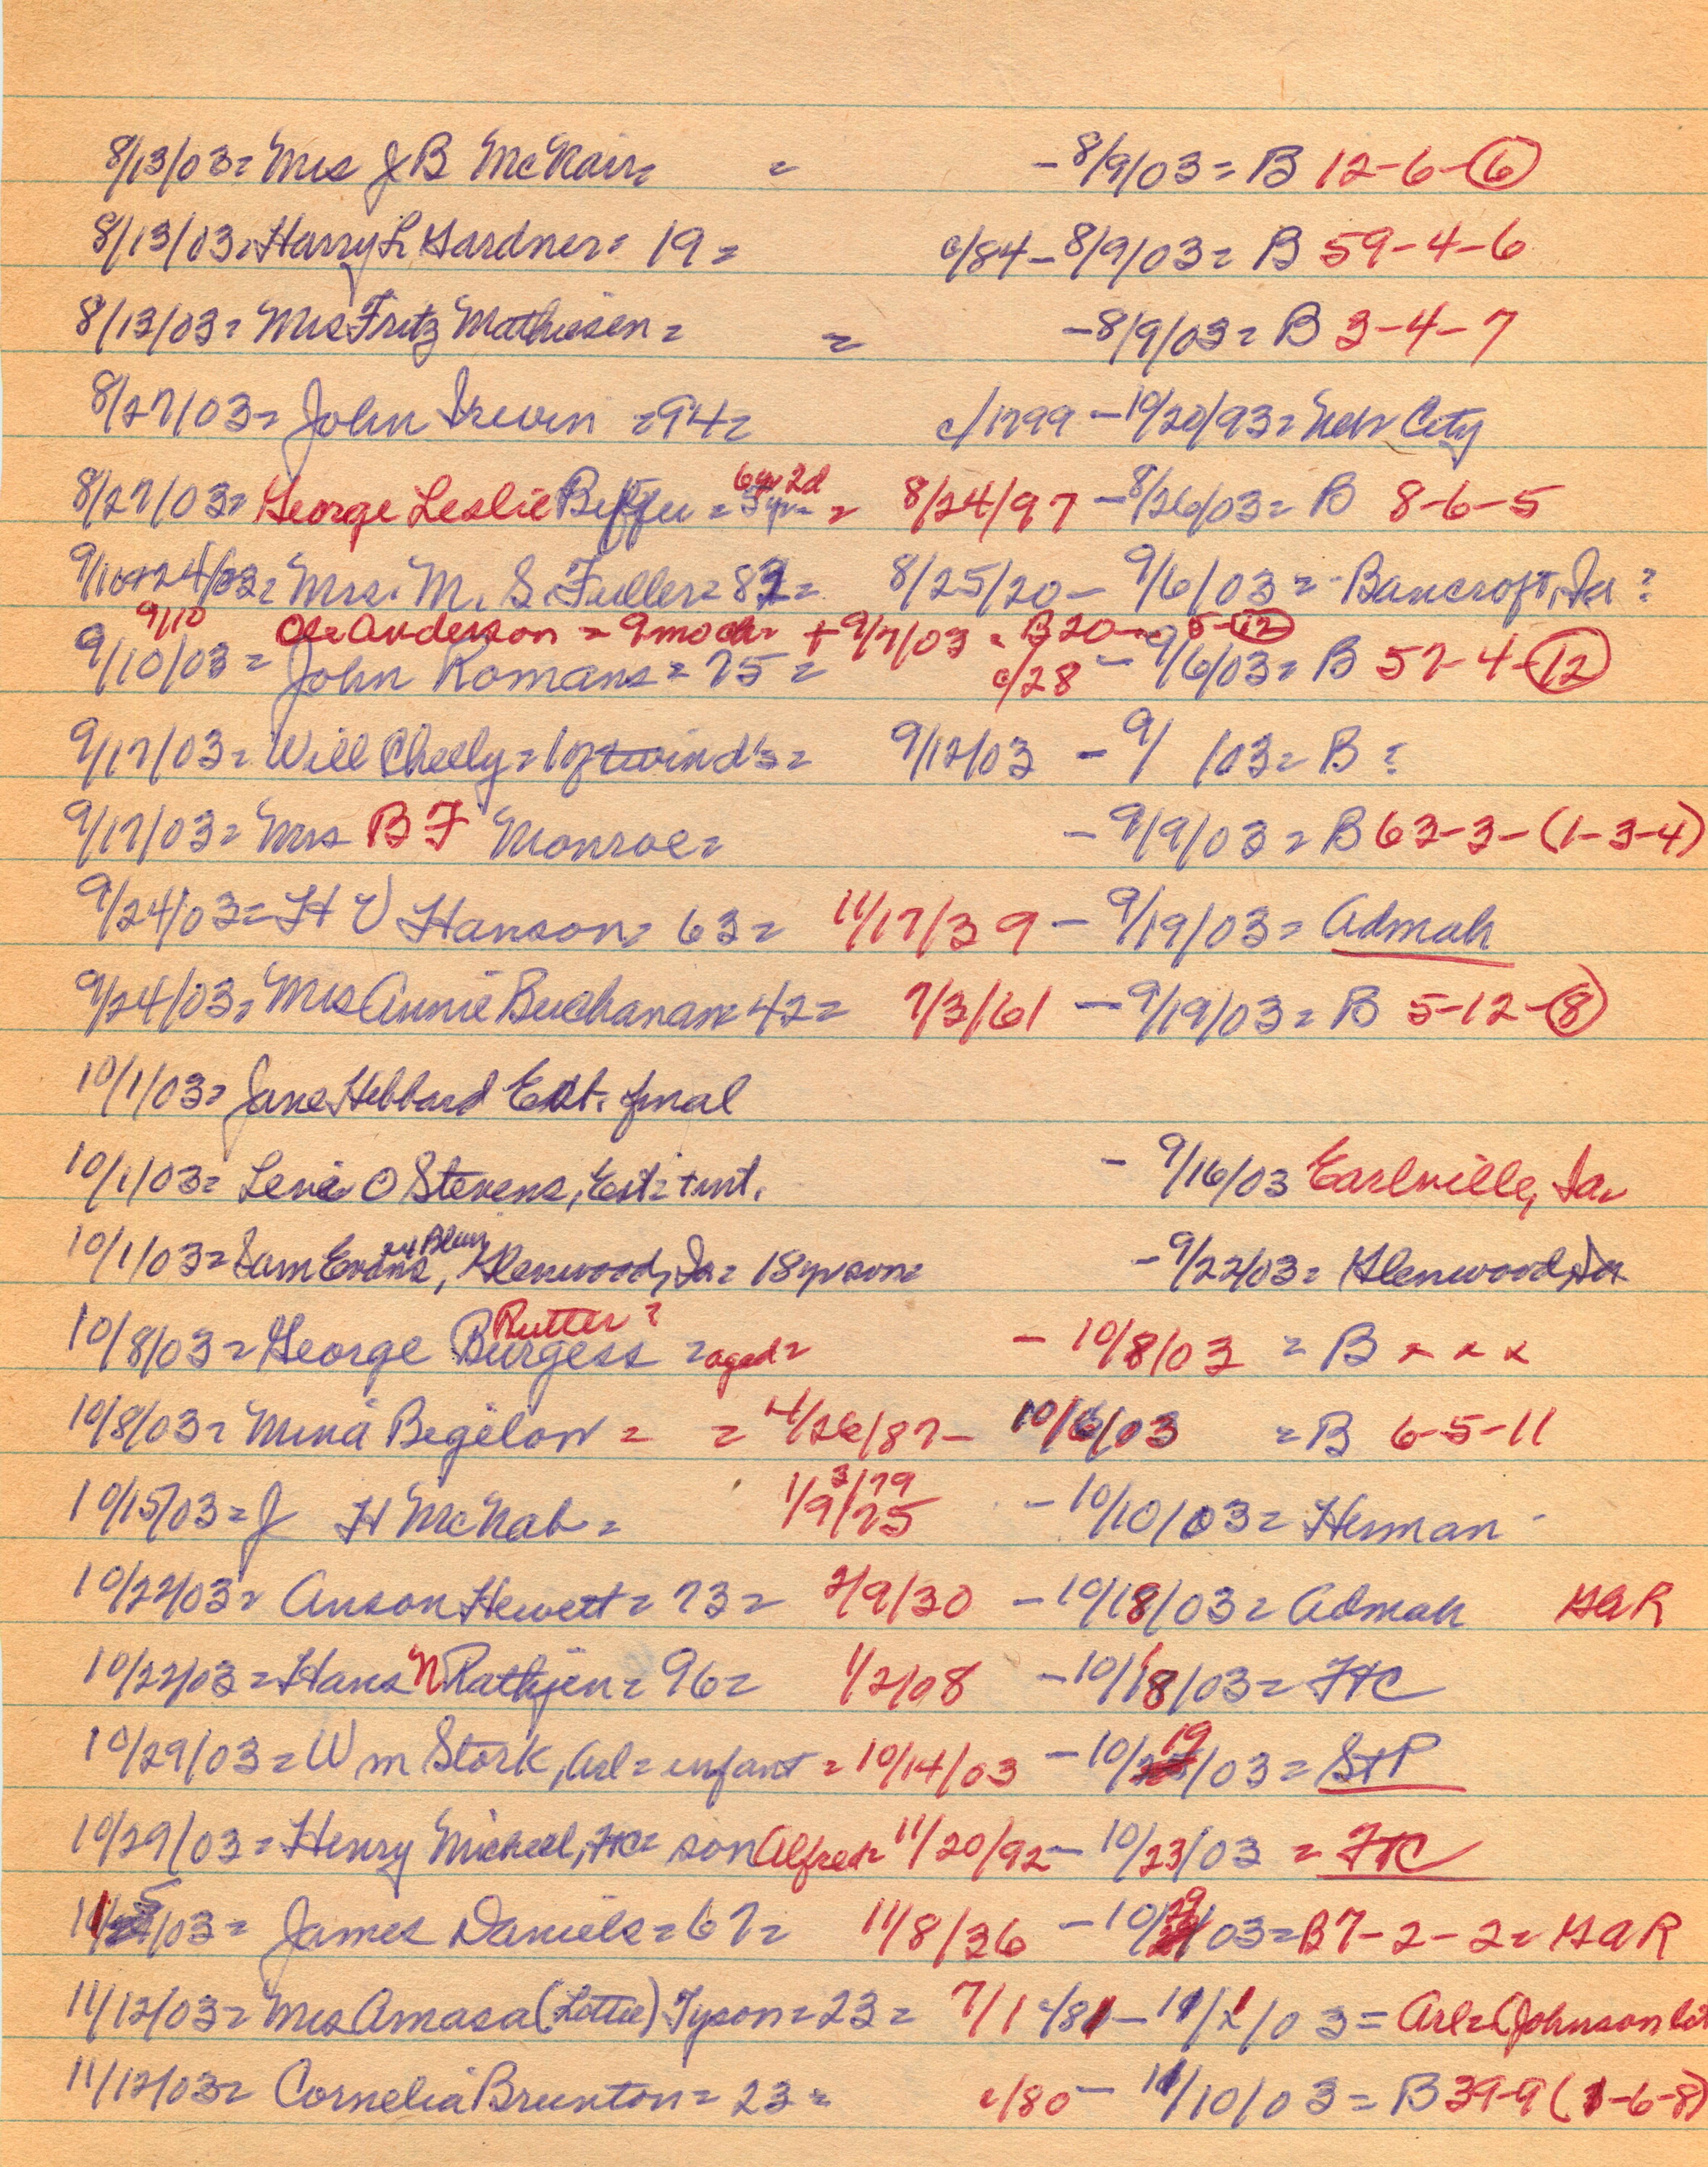 8/13/03= Mrs J B McNair= = - 8/9/03 = B 12-6-6
8/13/03= Harry L Gardner= 19= c/84 - 8/9/03= B 59-4-6
8/13/03= Mrs Fritz Mathiesen= = - 8/9/03= B 3-4-7
8/27/03= John Irevin =94= c/1799 - 10/20/93= Neb City
6yr 2d
8/27/03= George Leslie = = 8/24/97 - 8/26/03= B 8-6-5
9/10&24/03= Mrs. M. S. Fuller= 83= 8/25/20 - 9/6/03 = Bancroft, Ia ?
9/10 Ole Anderson = 9 mo = + 9/7/03 = B 20 - 5-12
9/10/03= John Romans= 75= c/28 - 9/6/03= B 57-4-12
9/17/03= Will Cheely= 1 of twin d's= 9/12/03 - 9/ /03= B ?
9/17/03= Mrs B F Monroe= - 9/9/03= B 63-3-(1-3-4)
9/24/03= H V Hanson= 63= 11/17/39 - 9/19/03= Admah
9/24/03= Mrs Annie Buchanan= 42= 7/3/61 - 9/19/03= B 5-12-8
10/1/03= Jane Hebbard Est. final
10/1/03= Levi O Stevens, Est= + int. - 9/16/03 Earlville, Ia=
ex Blair
10/1/03= Sam Evans, Glenwood, Ia= 18 yr son= - 9/22/03= Glenwood, Ia
Rutter?
10/8/03= George Burgess =aged= - 10/8/03 = B x x x
10/8/03= Mina Bigelow = = 4/26/87 - 10/6/03 = B 6-5-11
3/79
10/15/03= J H McNab= 1/9/75 - 10/10/03= Herman
10/22/03= Anson Hewett= 73= 2/9/30 - 10/18/03= Admah GAR
10/22/03= Hans N Rathjen= 96= 1/2/08 - 10/18/03= FtC
19
10/29/03= Wm Stork, Arl= infant = 10/14/03 - 10/ /03= StP
10/29/03= Henry Micheel, FtC= son Alfred= 11/20/92 - 10/23/03 = FtC
11/5/03= James Daniels= 67= 11/8/36 - 10/29/03= B 7-2-2= GAR
11/12/03= Mrs Amasa (Lottie) Tyson= 23= 7/1 c/81 - 11/1/03= Arl=(Johnson lot
11/12/03= Cornelia Brunton= 23= c/80 - 11/10/03= B 39-9 (1-6-8)